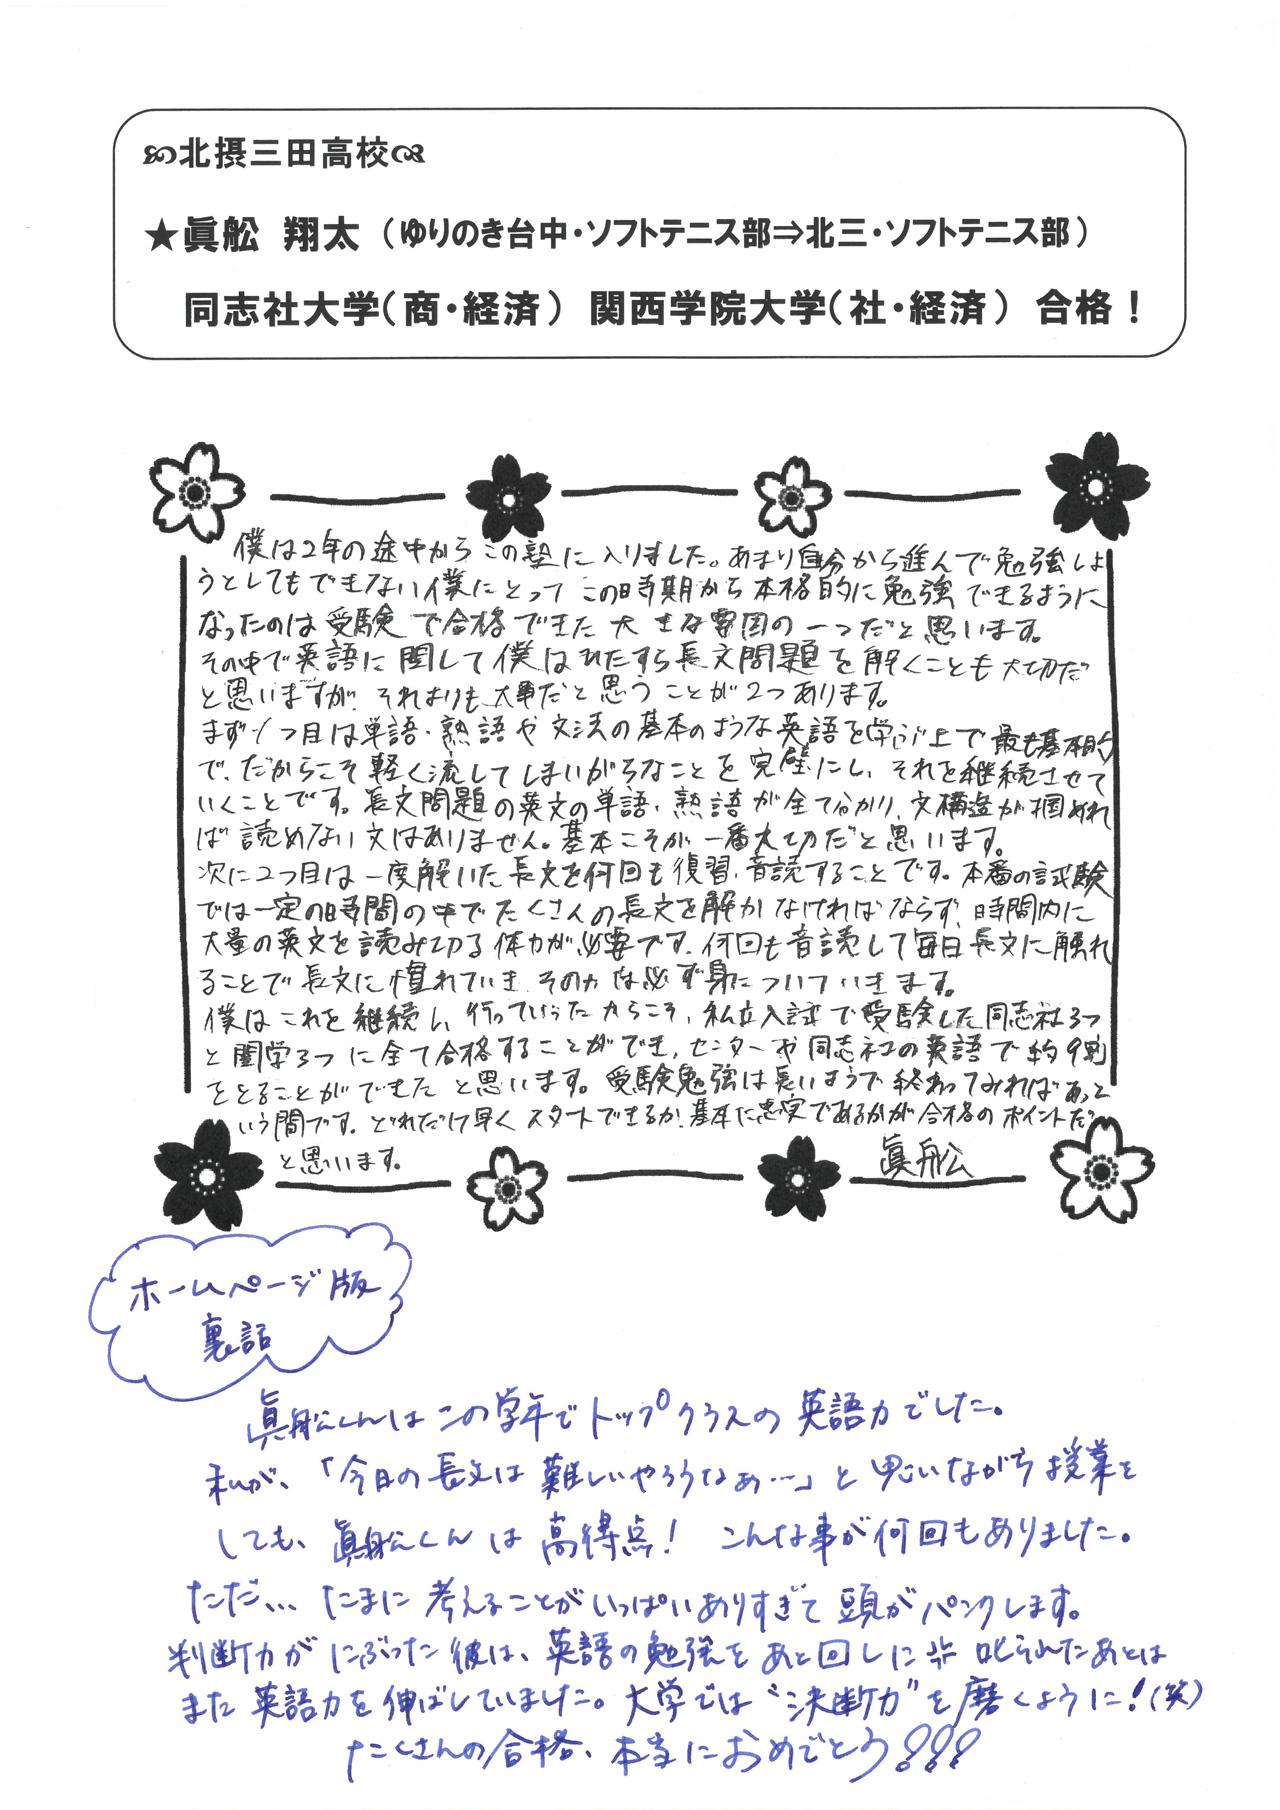 北摂三田高校
★眞舩 翔太（ゆりのき台中・ソフトテニス部⇒北三・ソフトテニス部）
同志社大学（商・経済） 関西学院大学（社・経済） 合格！
僕は2年の途中からこの塾に入りました。あまり自分から進んで勉強しよ
うとしてもできない僕にとってこの時期から本格的に勉強できるように
なったのは受験で合格できた大きな要因の一つだと思います。
その中で英語に関して僕はひたすら長文問題を解くことも大切だ
と思いますが、それよりも大事だと思うことが2つあります。
まず1つ目は単語・熟語や文法の基本のような英語を学ぶ上で最も基本的
で、だからこそ軽く流してしまいがちなことを完璧にし、それを継続させて
いくことです。長文問題の英文の単語、熟語が全て分かり、文構造が掴めれ
ば読めない文はありません。基本こそが一番大切だと思います。
次に2つ目は一度解いた長文を何回も復習、音読することです。本番の試験
では一定の時間の中でたくさんの長文を解かなければならず、時間内に
大量の英文を読み切る体力が必要です。何回も音読して毎日長文に触れ
ることで長文に慣れていき、その力は必ず身についていきます。
僕はこれを継続し、行っていったからこそ、私立入試で受験した同志社3つ
と関学3つに全て合格することができ、センターや同志社の英語で約9割
をとることができたと思います。受験勉強は長いようで終わってみればあっと
いう間です。どれだけ早くスタートできるか、基本に忠実であるかが合格のポイントだ
と思います。
眞舩
ホームページ版
裏話
眞舩くんはこの学年でトップクラスの英語力でした。
私が、「今日の長文は難しいやろうなぁ…」と思いながら授業を
しても、眞舩くんは高得点！ こんな事が何回もありました。
ただ… たまに考えることがいっぱいありすぎて頭がパンクします。
判断力がにぶった彼は、英語の勉強をあと回しに※ 叱られたあとは
また英語力を伸ばしていました。大学では“決断力”を磨くように！（笑）
たくさんの合格、本当におめでとう！！！